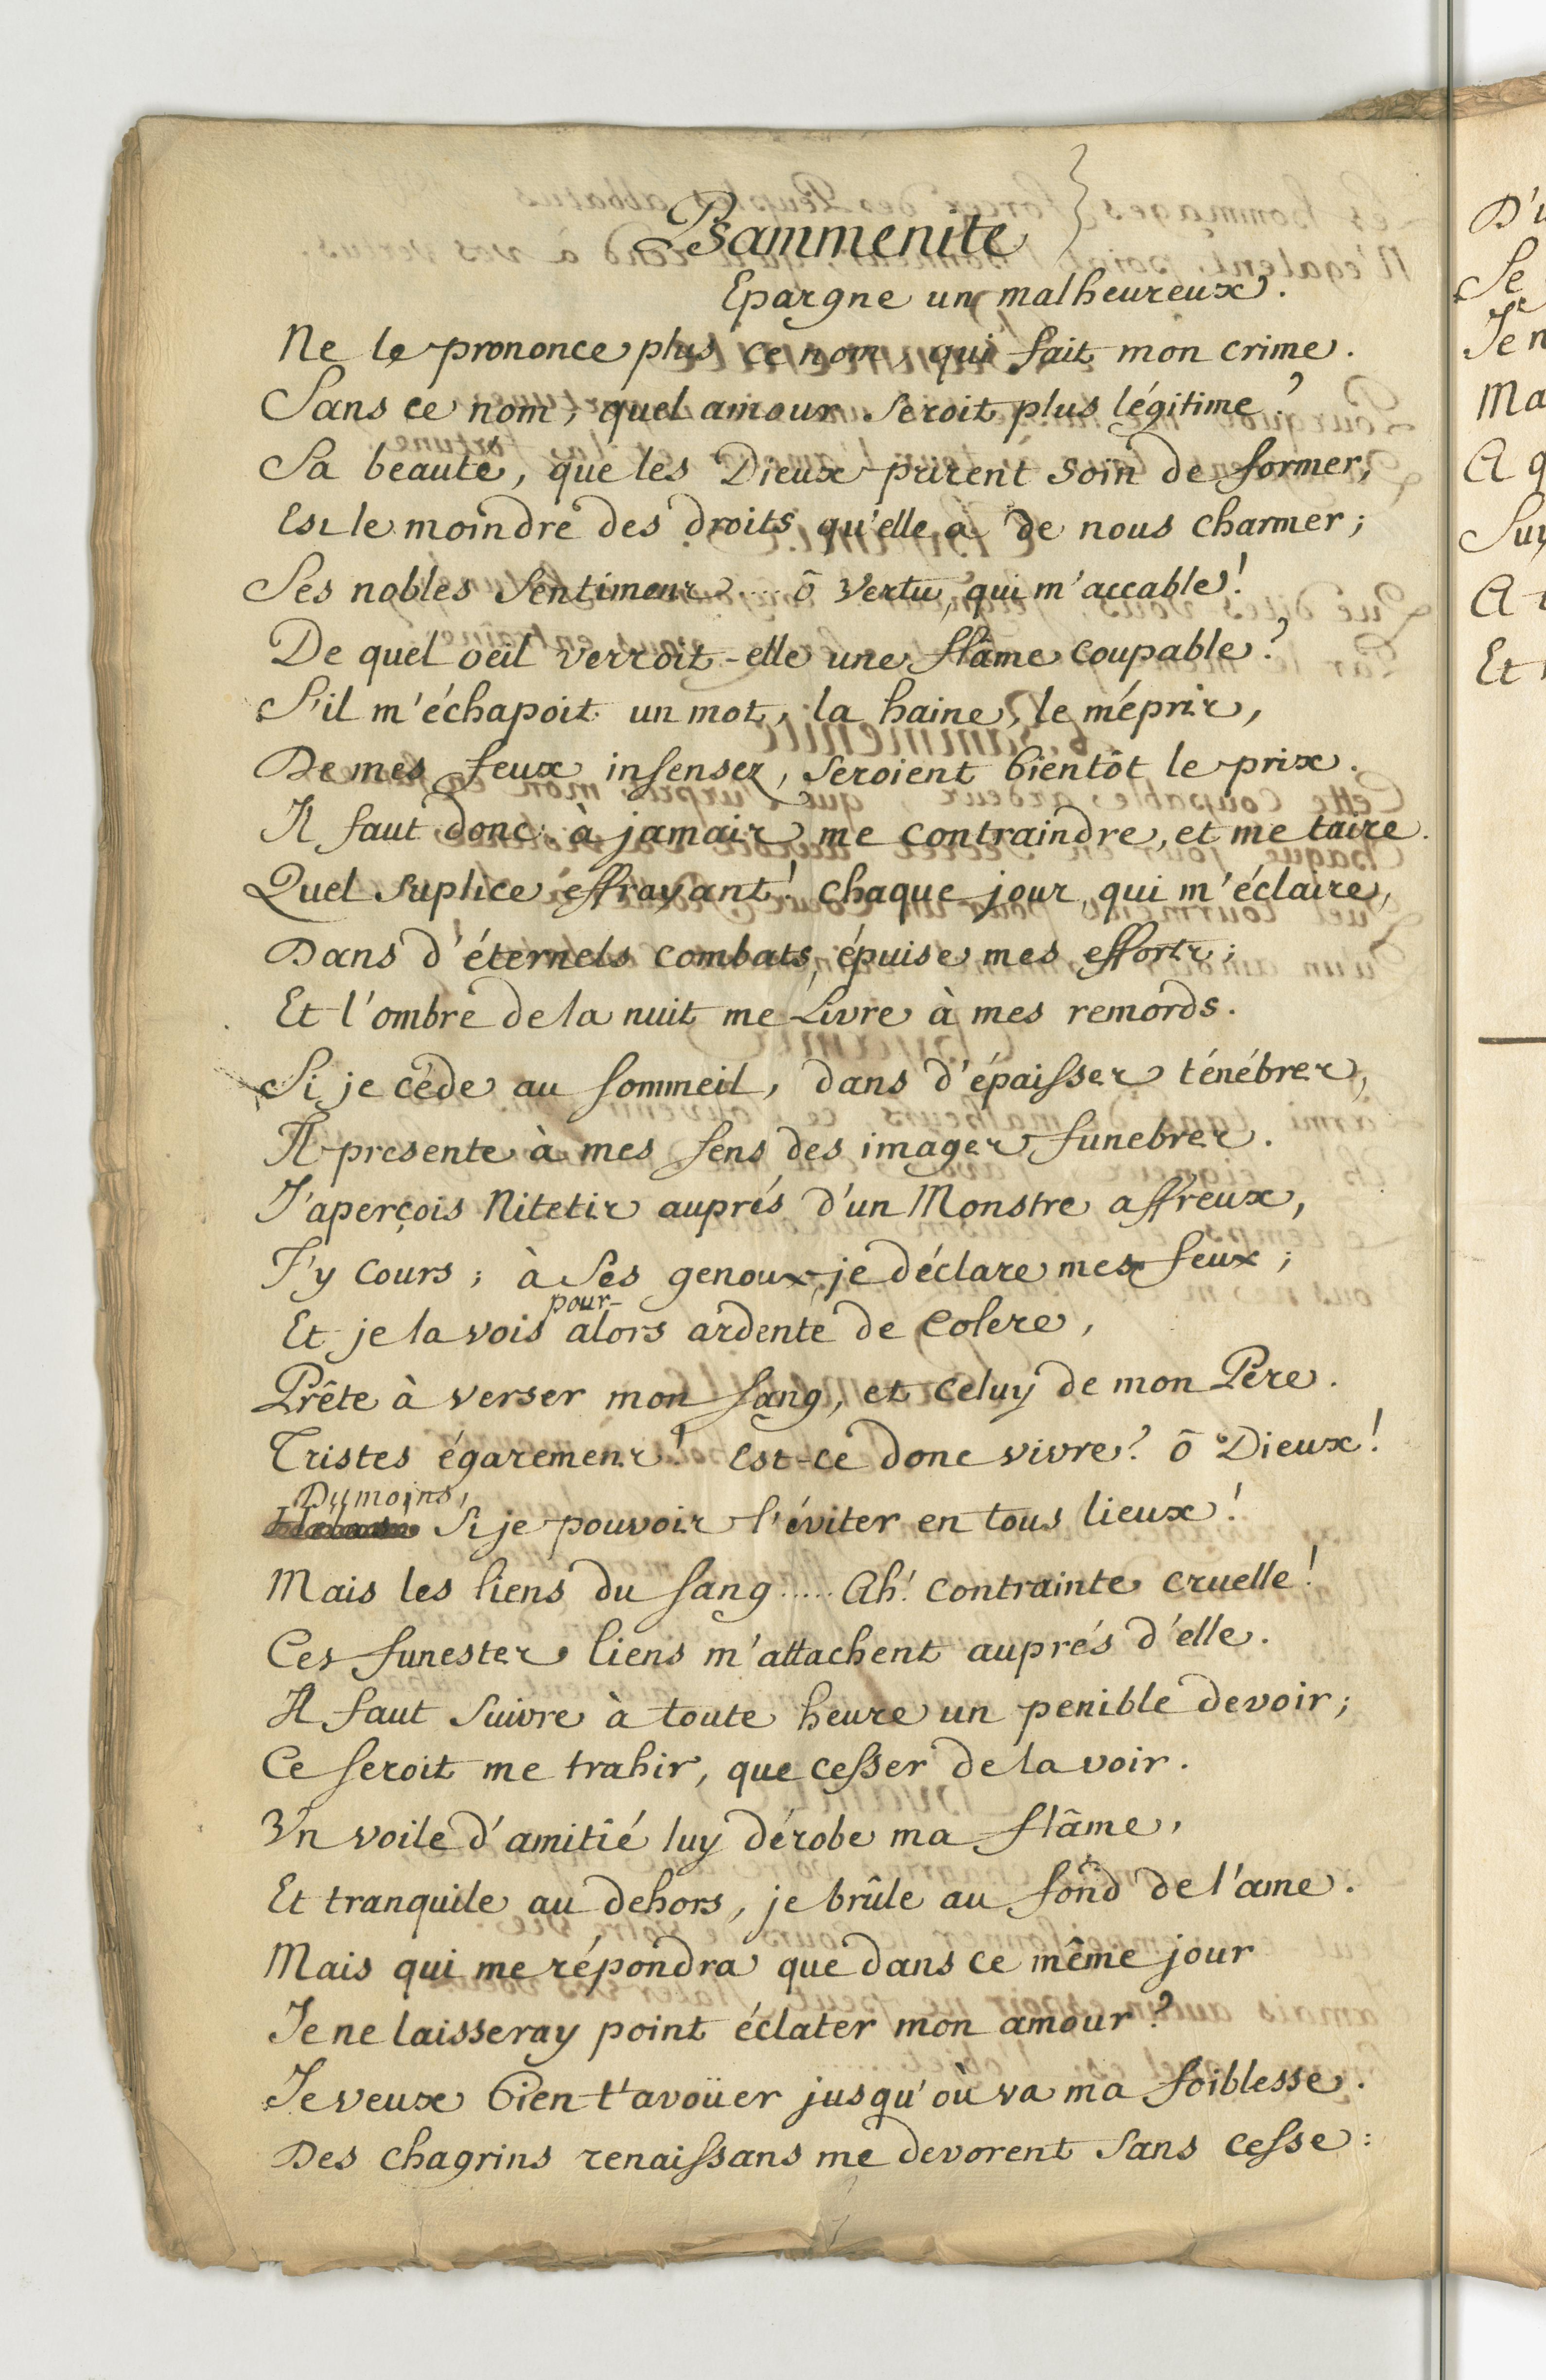 Psammenite
Epargne un malheureux.
Ne le prononce plus ce nom, qui fait mon crime.
Sans ce nom, quel amour seroit plus légitime?
Sa beauté, que les Dieux prirent soin de former,
Est le moindre des droits qu'elle a de nous charmer;
Ses nobles sentimens .... ô Vertu, qui m'accable!
De quel oeil verroit-elle une flâme coupable?
S'il m'échapoit un mot, la haine, le mépris,
De mes feux insensez, seroient bientôt le prix.
Il faut donc à jamais me contraindre, et me taire.
Quel suplice effrayant! chaque jour, qui m'éclaire,
Dans d'éternels combats, épuise mes efforts;
Et l'ombre de la nuit me livre à mes remords.
Si je céde au sommeil, dans d'épaisses ténébres,
Il presente à mes sens des images funebres.
J'aperçois Nitetis auprés d'un Monstre affreux,
J'y cours; à ses genoux, je déclare mes feux;
pour-
Et je la vois alors ardente de colere,
Prête à verser mon sang, et celuy de mon Pere.
Tristes égaremens! est-ce donc vivre? ô Dieux!
Du moins,
Si je pouvois l'éviter en tous lieux!
Mais les liens du sang..... Ah! contrainte cruelle!
Ces funestes liens m'attachent auprés d'elle.
Il faut suivre à toute heure un penible devoir;
Ce seroit me trahir, que cesser de la voir.
Un voile d'amitié luy dérobe ma flâme,
Et tranquile au dehors, je brûle au fond de l'ame.
Mais qui me répondra que dans ce même jour
Je ne laisseray point éclater mon amour?
Je veux bien t'avoüer jusqu'où va ma foiblesse.
Des chagrins renaissans me devorent sans cesse: